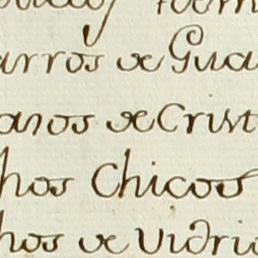 arros de Gua
anos de Crist
hos Chicos
hos de vidrio